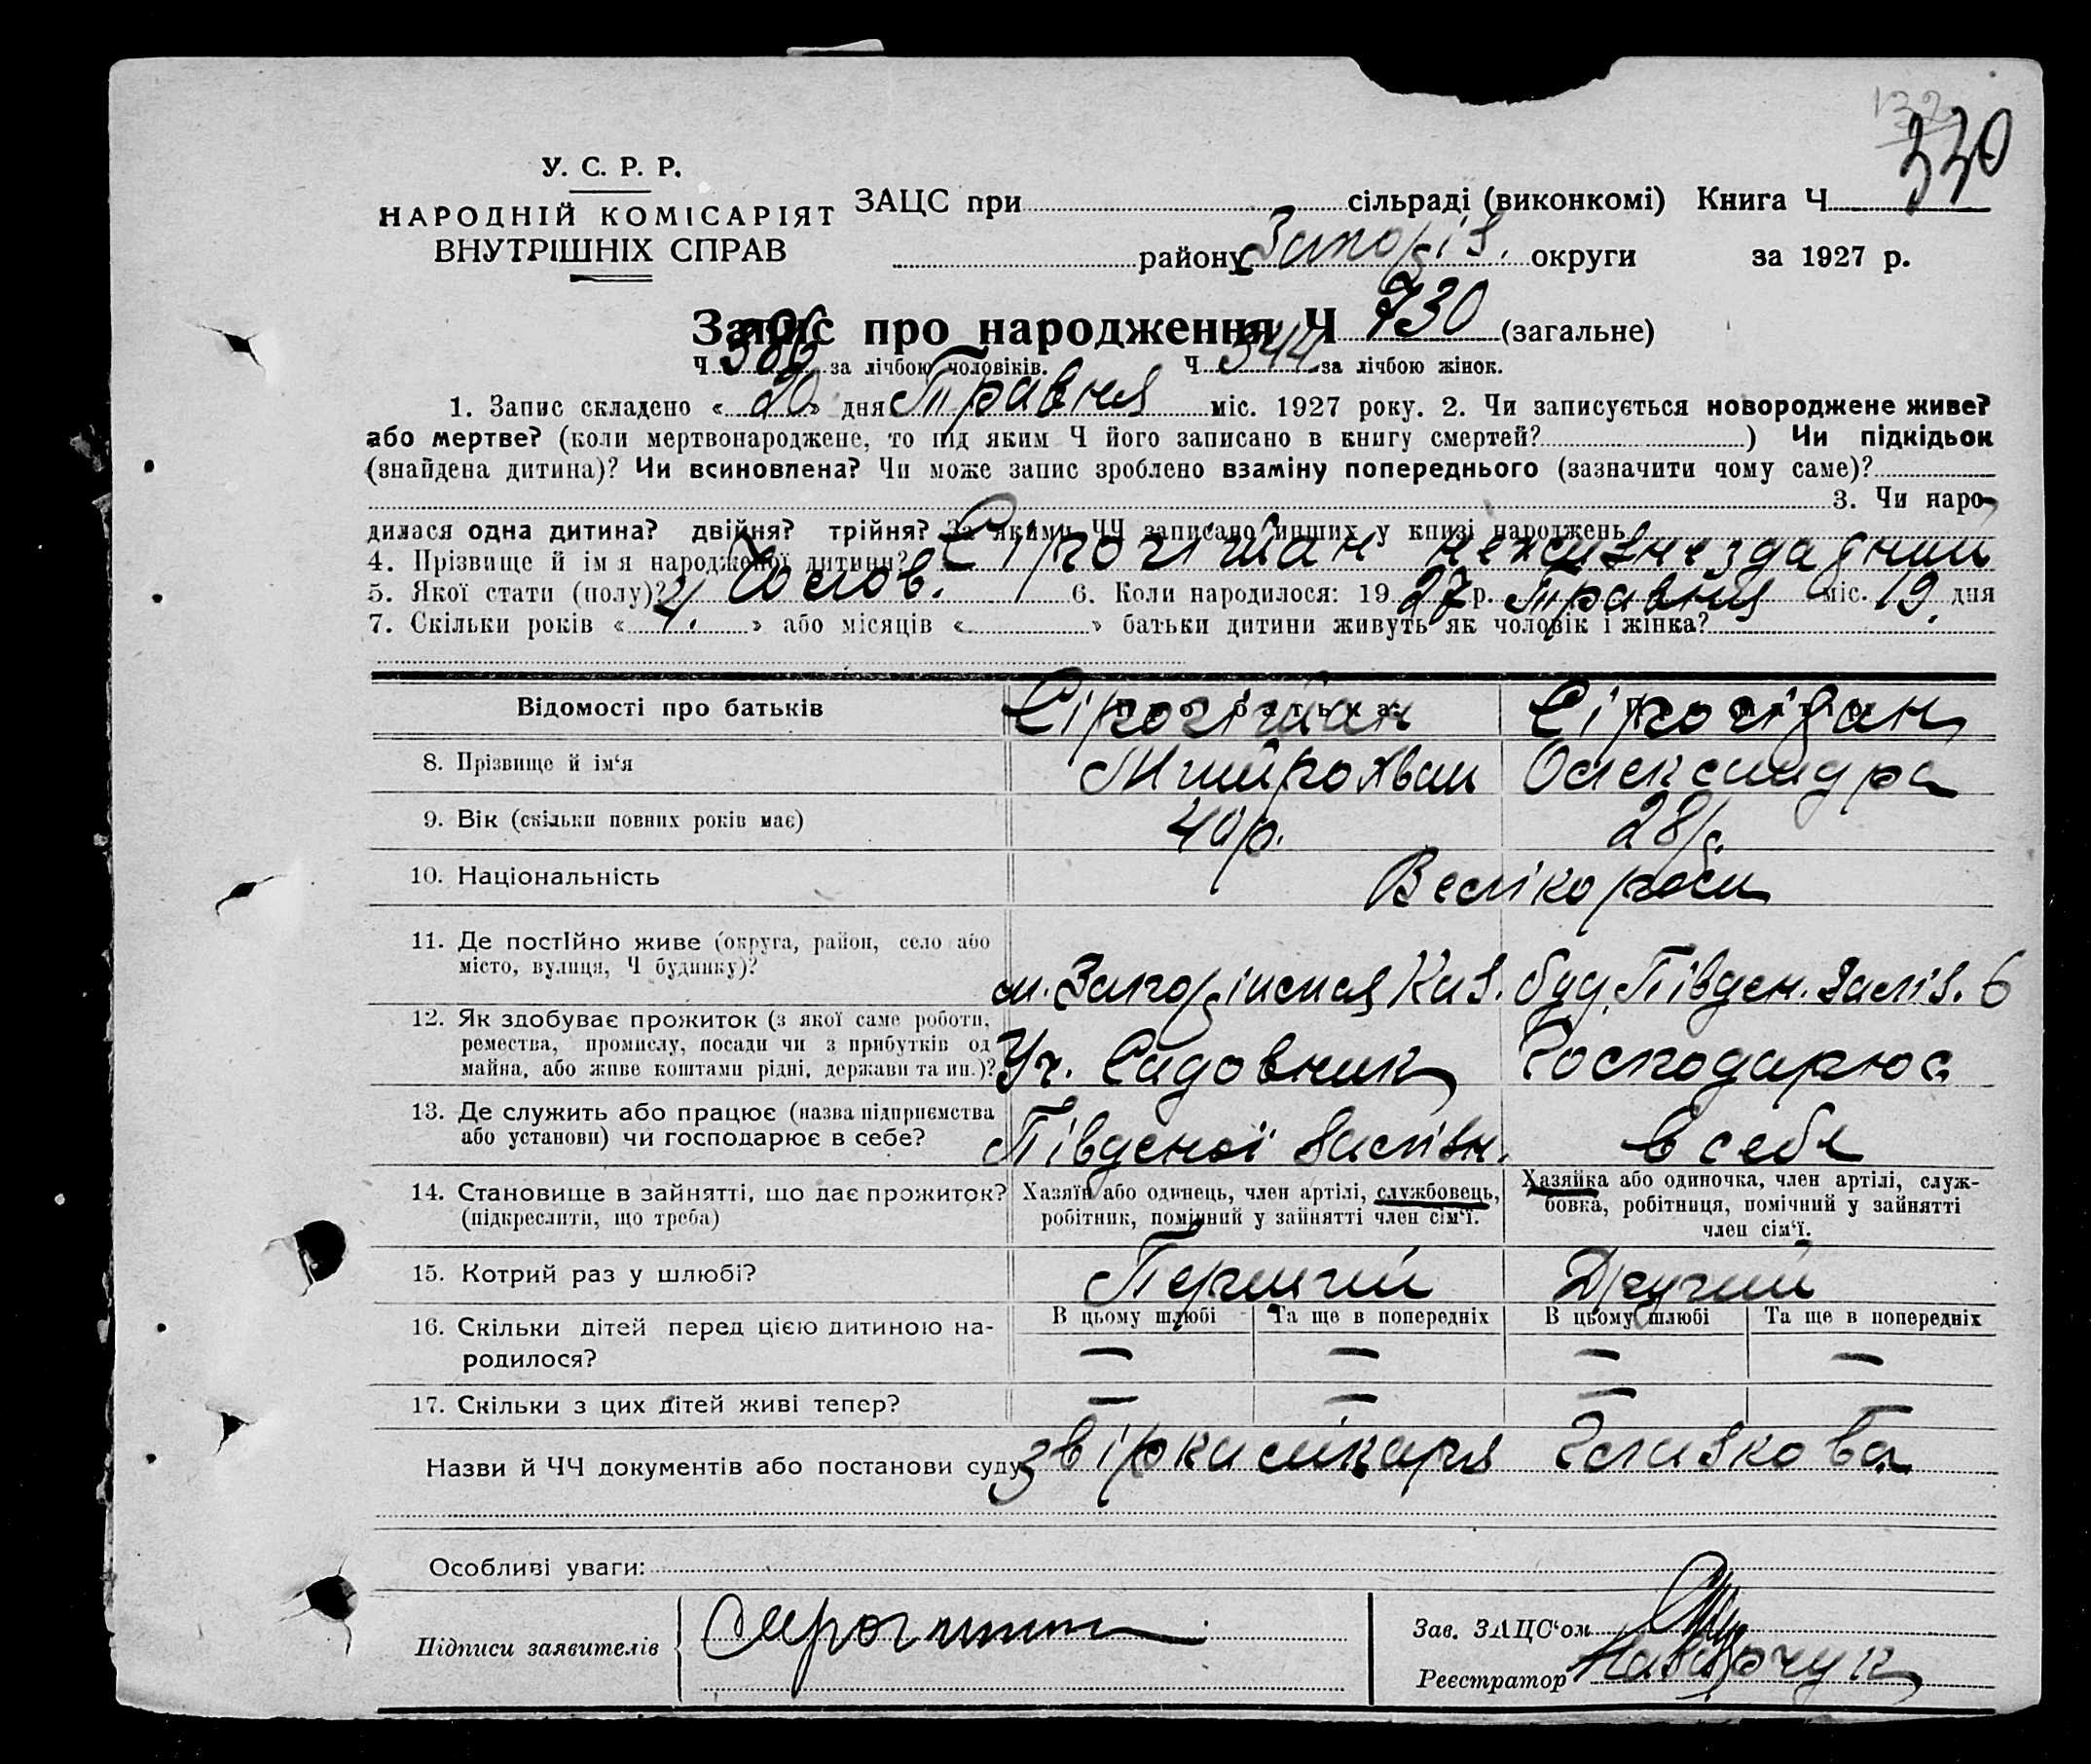 132
330
У. С. Р. Р.
НАРОДНІЙ КОМІСАРІЯТ
ВНУТРІШНІХ СПРАВ
ЗАЦС при сільраді (виконкомі) Книга Ч
району Запоріз. округи за 1927 р.
Запис про народження Ч 730 (загальне)
Ч 386 за лічбою чоловіків. Ч 344 за лічбою жінок.
1. Запис складено « 20 » дня Травня міс. 1927 року. 2. Чи записується новороджене живе?
або мертве? (коли мертвонароджене, то під яким Ч його записано в книгу смертей? ) Чи підкідьок
(знайдена дитина)? Чи всиновлена? Чи може запис зроблено взаміну попереднього (зазначити чому саме)?
3. Чи наро-
дилася одна дитина? двійня? трійня? За якими ЧЧ записано инших у книзі народжень
4. Прізвище й ім я народженої дитини? Сірогіман нежиттєздадний
5. Якої статі (полу)? Чолов. 6. Коли народилося: 19 27 р. Травня міс. 19 дня
7. Скільки років « 1. » або місяців « » батьки дитини живуть як чоловік і жінка?
Відомості про батьків Про батька Про матір
Сірогіман Сірогіман
8. Прізвище й ім‘я Митрохван Олександра
9. Вік (скільки повних років має) 40 р. 28 р.
10. Національність Велікороси
11. Де постійно живе (округа, район, село або
місто, вулиця, Ч будинку)?
м. Запоріжжя Каз. буд. Півден. Заліз. 6
12. Як здобуває прожиток (з якої саме роботи,
ремества, промислу, посади чи з прибутків од
майна, або живе коштами рідні, держави та ин.)?
Уч. Садовник Господарює
13. Де служить або працює (назва підприємства
або установи) чи господарює в себе?
Південої Залізн. в себе
14. Становище в зайнятті, що дає прожиток?
(підкреслити, що треба)
Хазяїн або одинець, член артілі, службовець,
робітник, помічний у зайнятті член сім‘ї.
Хазяйка або одиночка, член артілі, служ-
бовка, робітниця, помічний у зайнятті
член сім‘ї.
15. Котрий раз у шлюбі? Перший Другий
16. Скільки дітей перед цією дитиною на-
родилося?
В цьому шлюбі Та ще в попередніх В цьому шлюбі Та ще в попередніх
— — — —
17. Скільки з цих дітей живі тепер? — — — —
Назви й ЧЧ документів або постанови суду звірки лікаря Глизкова
Особливі уваги:
Підписи заявителів
Зав. ЗАЦС‘ом
Реєстратор